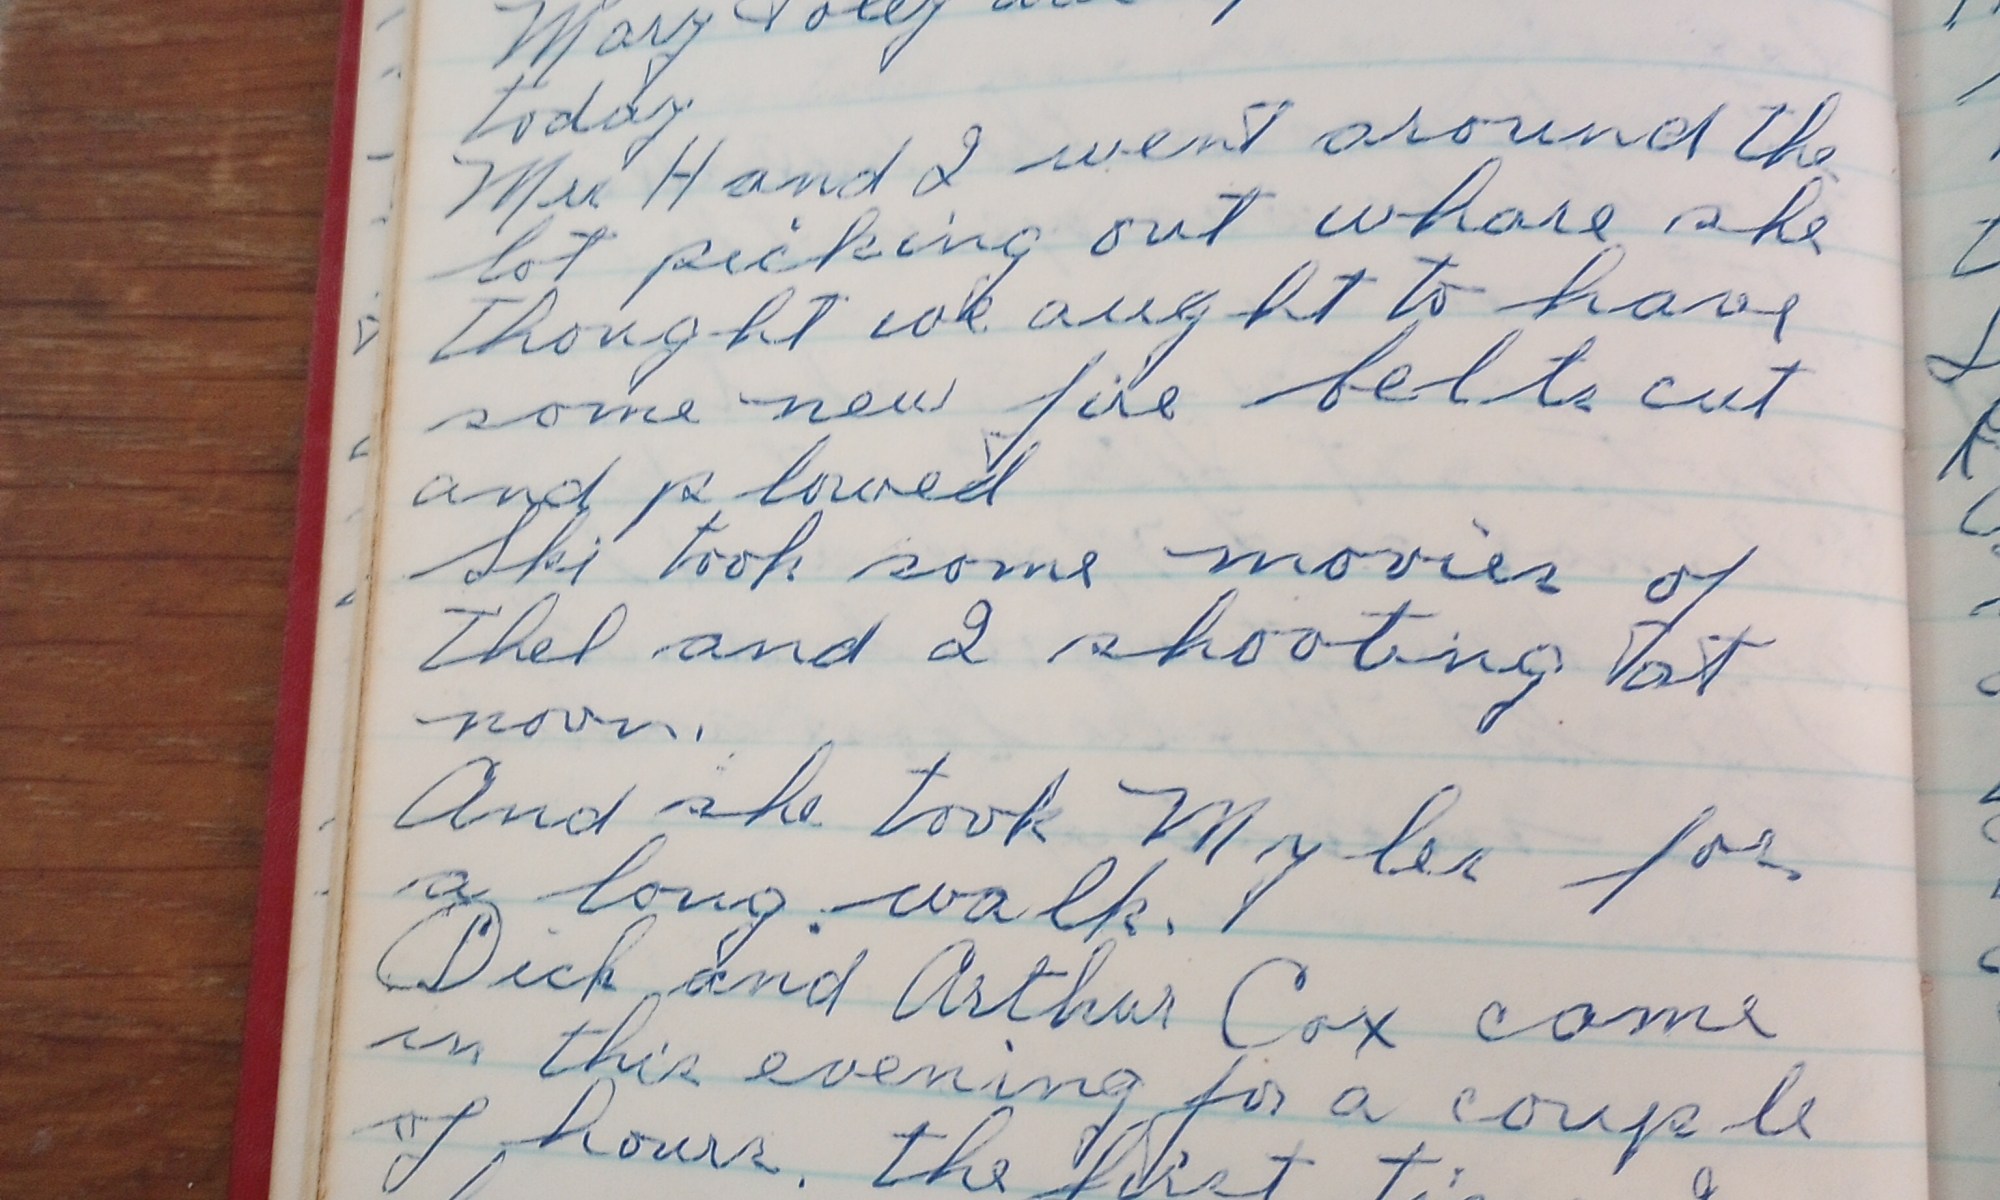 Mary Foley
today
Mrs H and I went around the
lot picking out whare she
thought we aught to have
some new fire belts cut
and plowed
Ski took some movies of
Thel and I shooting at
noon.
And she took Myles for
a long walk.
Dick and Arthur Cox came
in this evening for a couple
of hours. The first